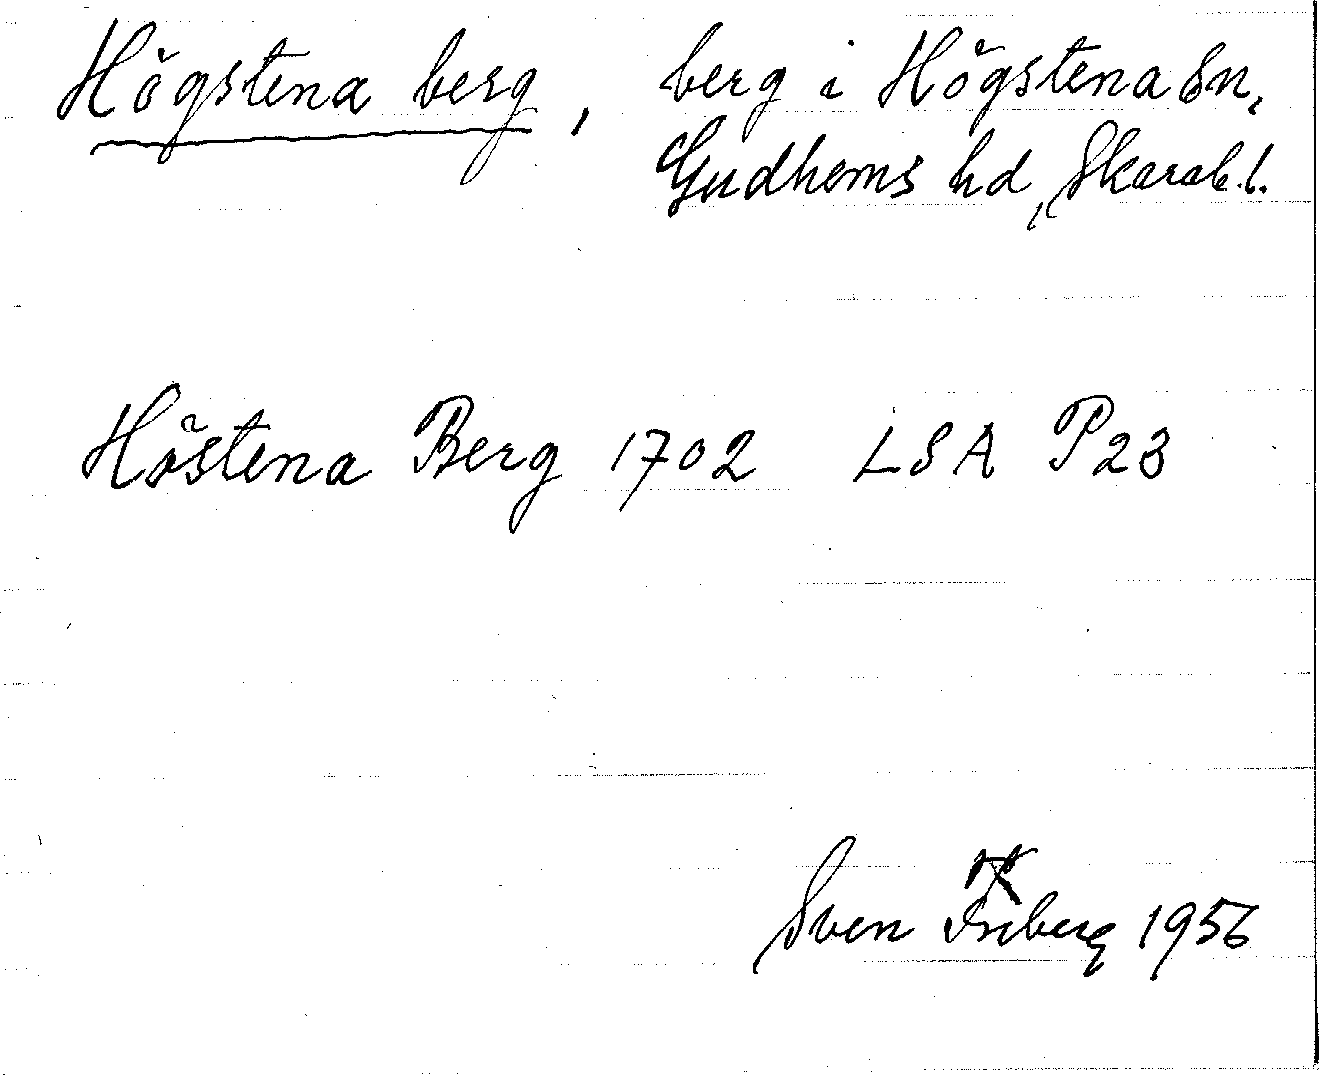 Högstena berg, berg i Högstena sn,
Gudhems hd, Skarab. l.
Höstena Berg 1702 LSA P23
Sven Friberg 1956